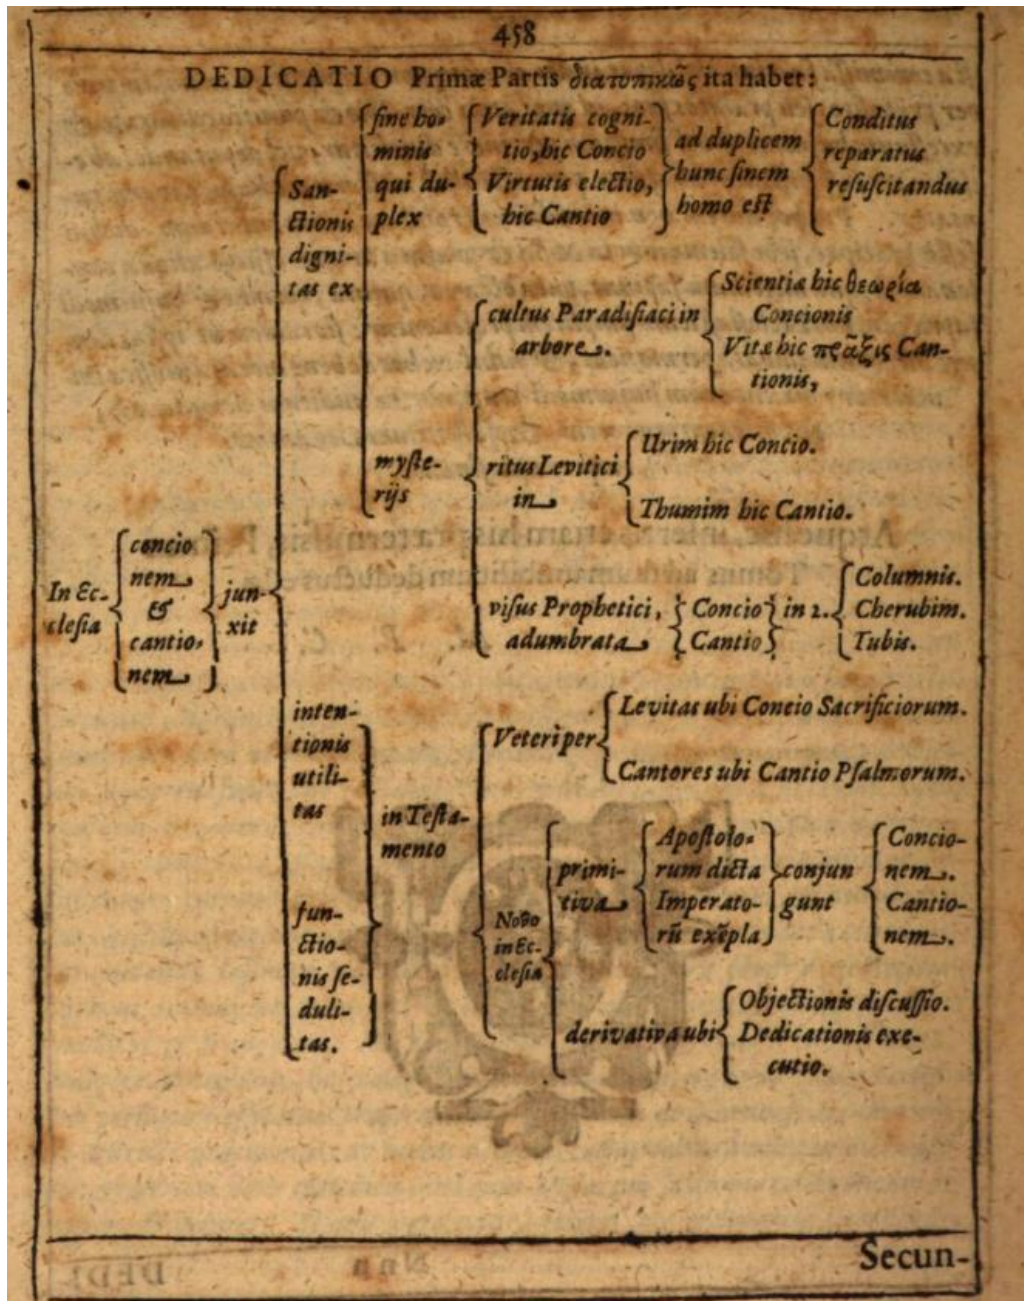 458
DEDICATIO Primæ Partis διατυπικῶς ita habet:
San-
ctionis
digni-
tas ex
fine ho-
minis
qui du-
plex
Veritatis cogni-
tio, hic Concio
Virtutis electio,
hic Cantio
ad duplicem
hunc finem
homo est
Conditus
reparatus
resuscitandus
myste-
rijs
cultus Paradisiaci in
arbore.
Scientiæ hic θεωρία
Concionis
Vitæ hic πρᾶξις Can-
tionis,
ritus Levitici
in
Urim hic Concio.
Thumim hic Cantio.
visus Prophetici,
adumbrata
Concio
Cantio
in 2.
Columnis.
Cherubim.
Tubis.
In Ec-
clesia
concio
nem
&
cantio-
nem
jun-
xit
inten-
tionis
utili-
tas
fun-
ctio-
nis se-
duli-
tas.
in Testa-
mento
Veteri per
Levitas ubi Concio Sacrificiorum.
Cantores ubi Cantio Psalmorum.
Novo
in Ec-
clesia
primi-
tiva
Apostolo-
rum dicta
Imperato-
rũ exẽpla
conjun
gunt
Concio-
nem.
Cantio-
nem.
derivativa ubi
Objectionis discussio.
Dedicationis exe-
cutio.
Secun-